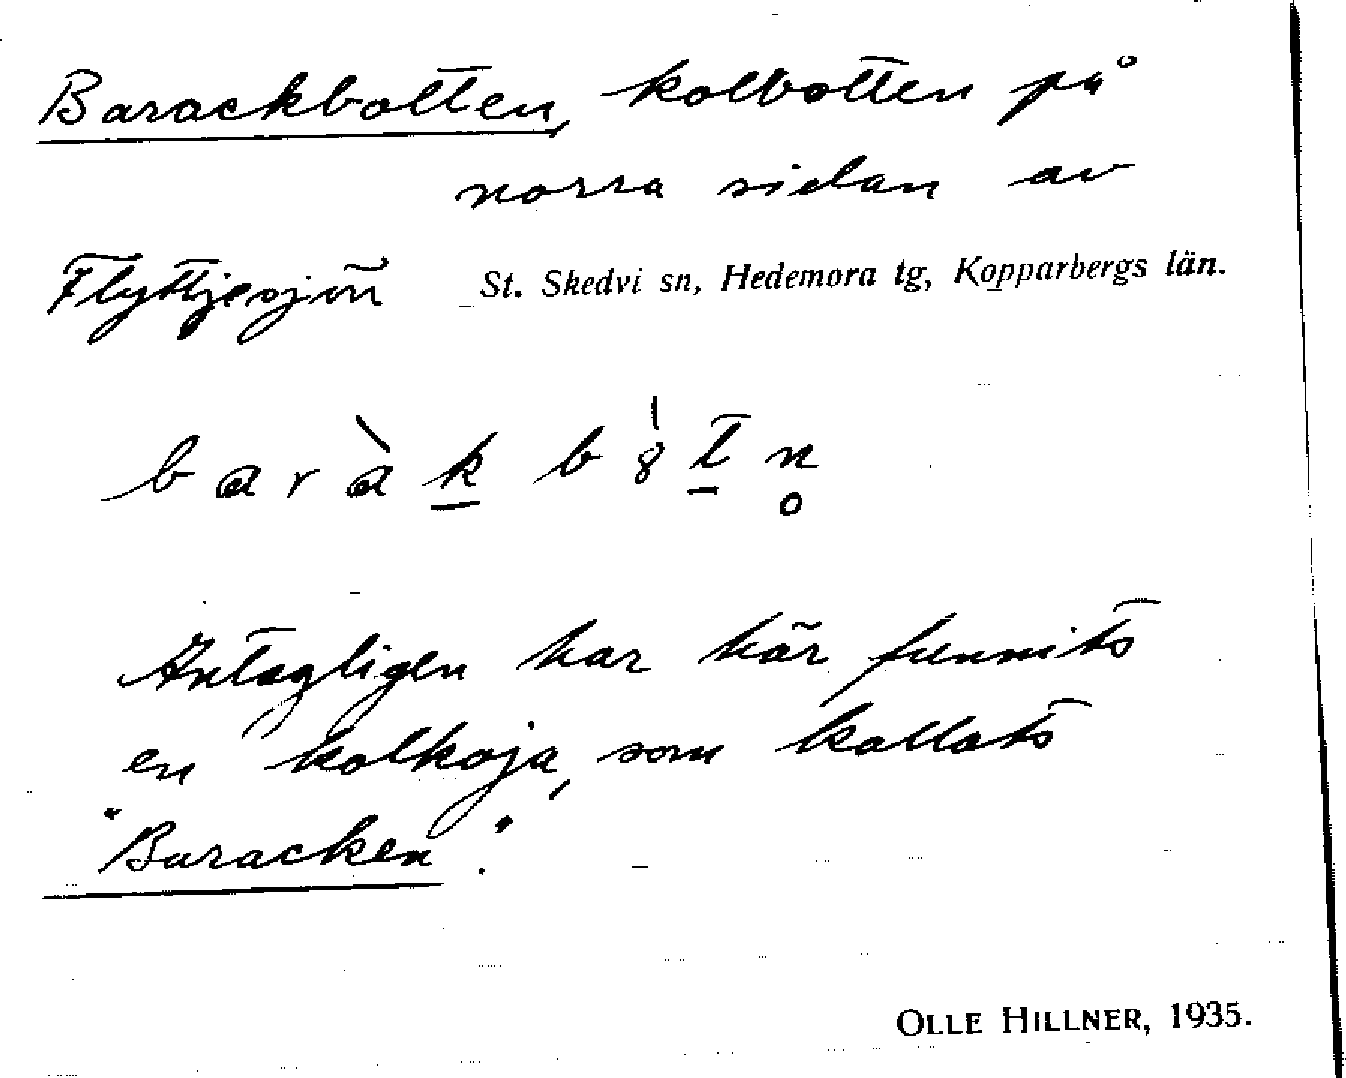 Barackbotten, kolbotten på
norra sidan av
Flyttjesjön St. Skedvi sn, Hedemora tg, Kopparbergs län.
baràk b8̍tn̥
Antagligen har här funnits
en kolkoja, som kallats
"Baracken".
OLLE HILLNER, 1935.